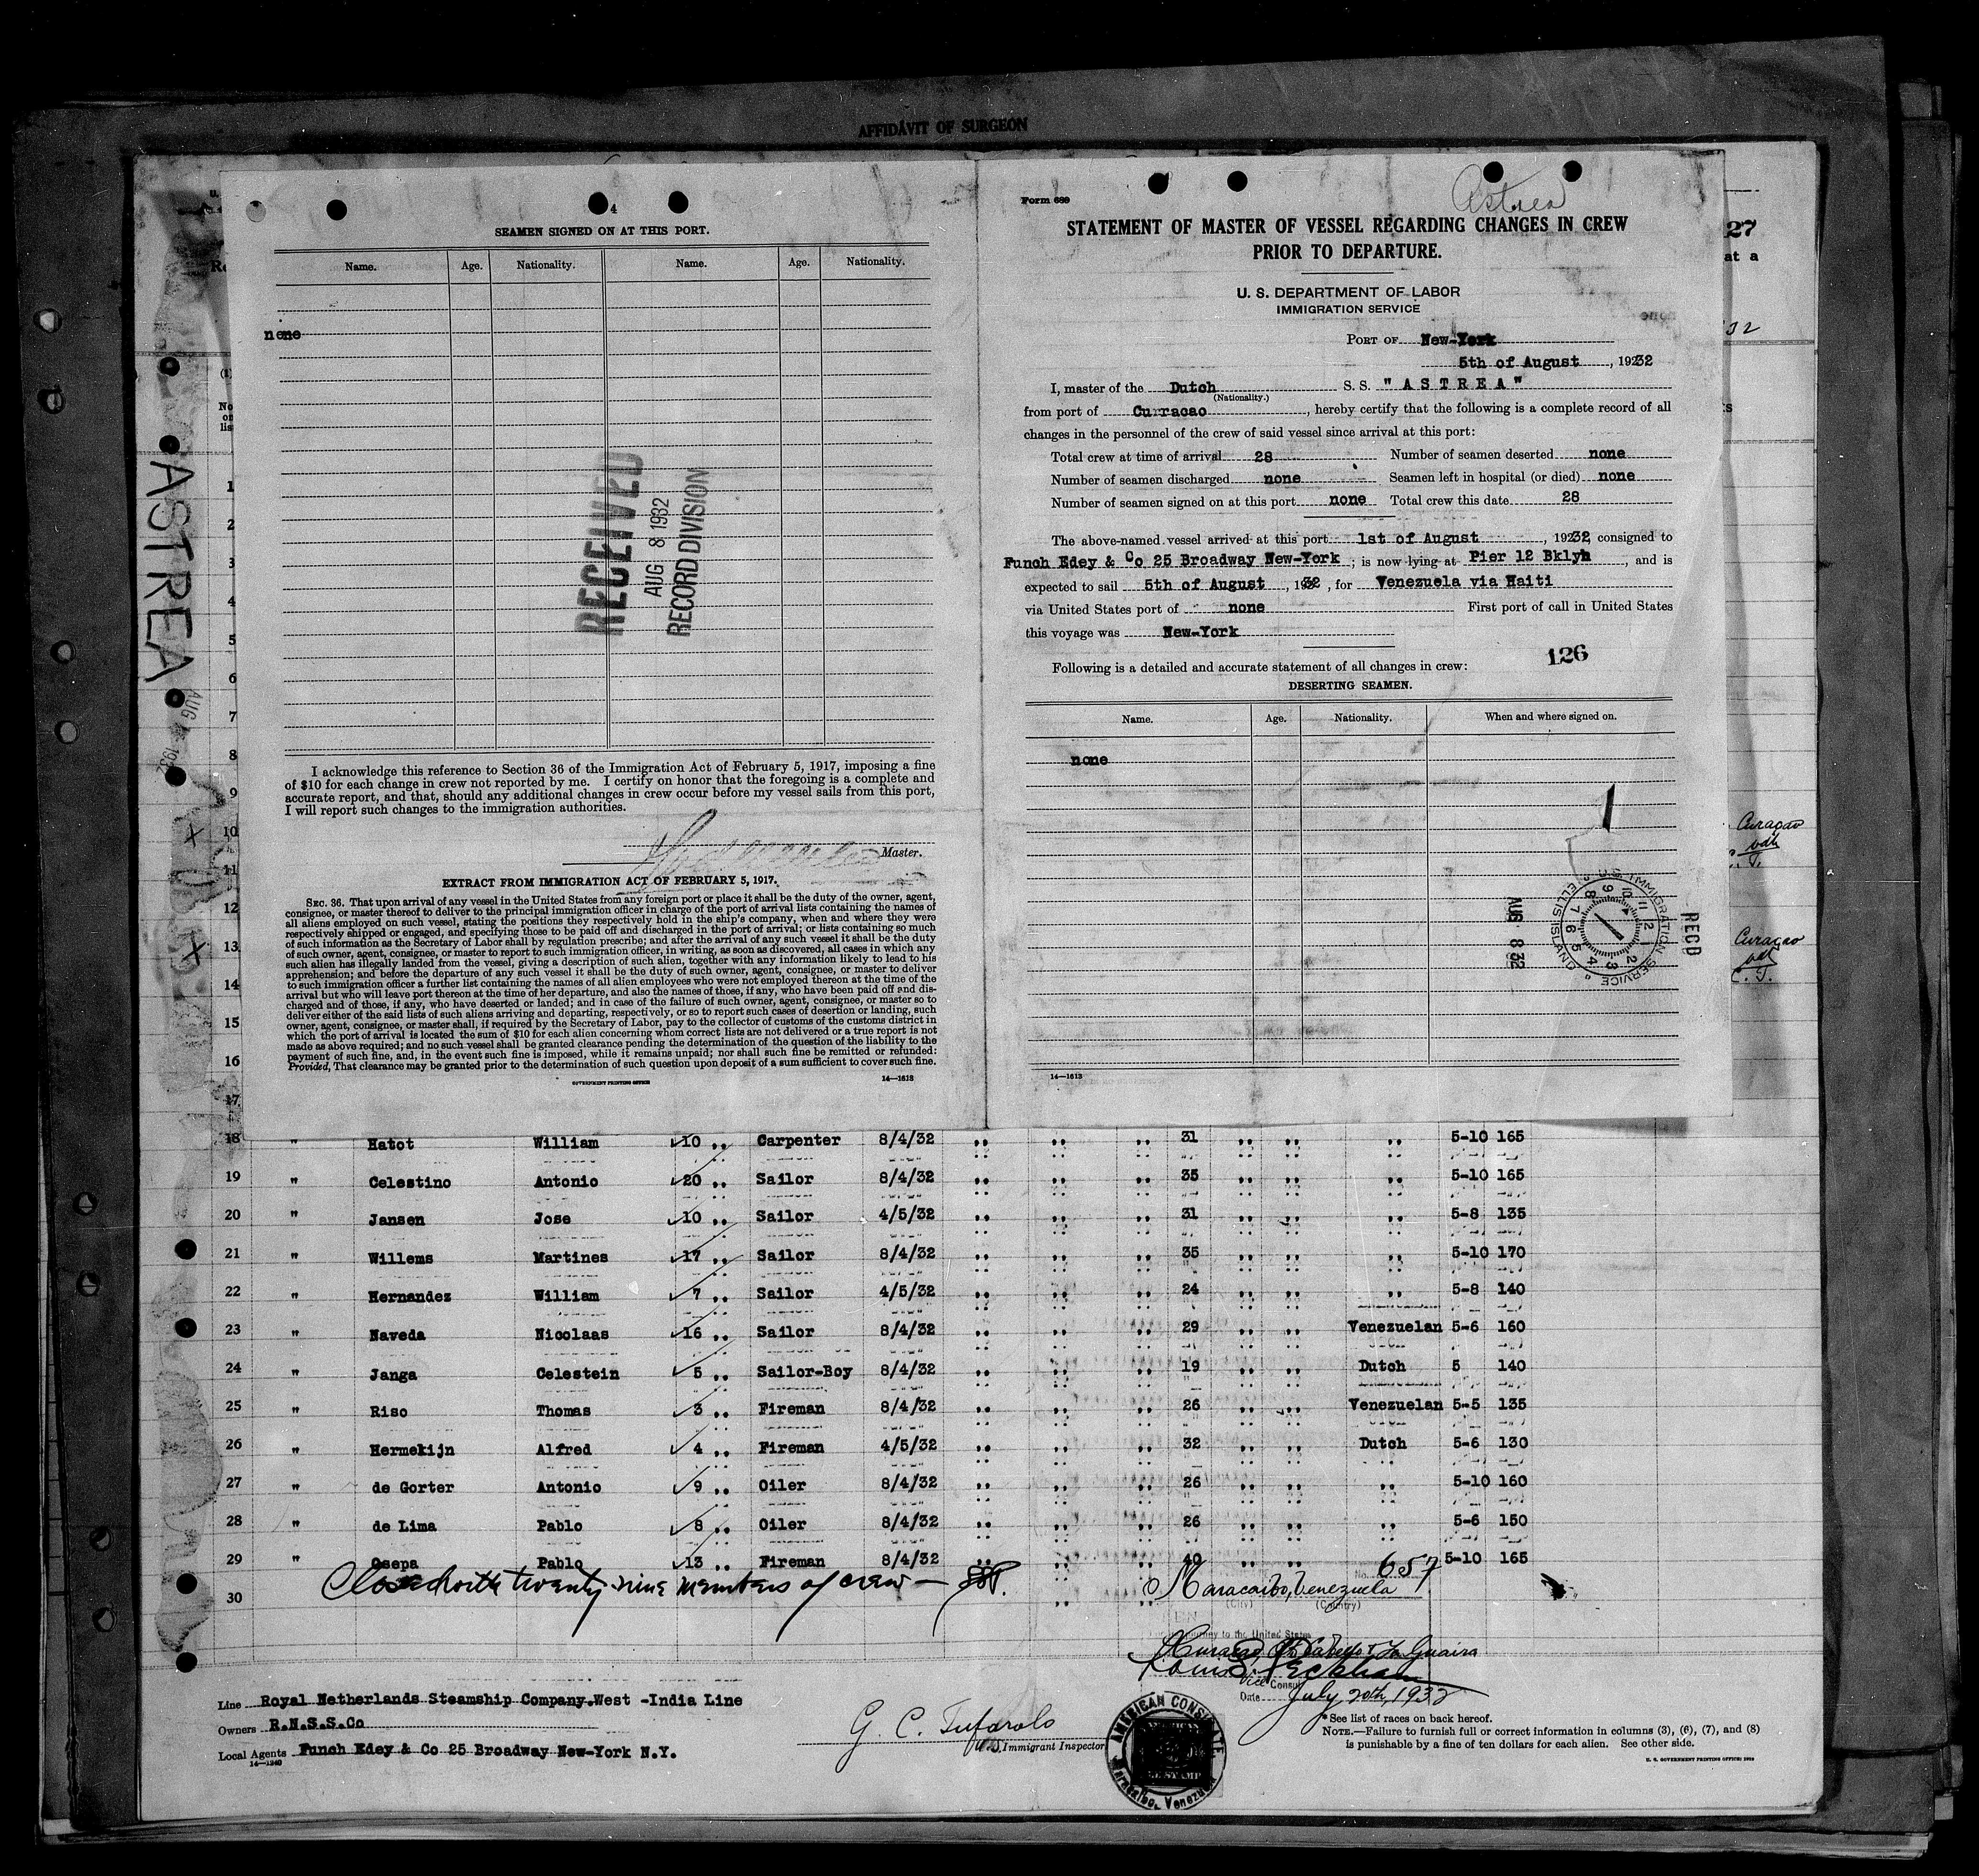 AFFIDAVIT OF SURGEON
4
SEAMEN SIGNED ON AT THIS PORT.
Name. Age. Nationality. Name. Age. Nationality.
none
RECEIVED
AUG 8 1932
RECORD DIVISION
I acknowledge this reference to Section 36 of the Immigration Act of February 5, 1917, imposing a fine
of $10 for each change in crew not reported by me. I certify on honor that the foregoing is a complete and
accurate report, and that, should any additional changes in crew occur before my vessel sails from this port,
I will report such changes to the immigration authorities.
Master.
EXTRACT FROM IMMIGRATION ACT OF FEBRUARY 5, 1917.
SEC. 36. That upon arrival of any vessel in the United States from any foreign port or place it shall be the duty of the owner, agent,
consignee, or master thereof to deliver to the principal immigration officer in charge of the port of arrival lists containing the names of
all aliens employed on such vessel, stating the positions they respectively hold in the ship's company, when and where they were
respectively shipped or engaged, and specifying those to be paid off and discharged in the port of arrival; or lists containing so much
of such information as the Secretary of Labor shall by regulation prescribe; and after the arrival of any such vessel it shall be the duty
of such owner, agent, consignee, or master to report to such immigration officer, in writing, as soon as discovered, all cases in which any
such alien has illegally landed from the vessel, giving a description of such alien, together with any information likely to lead to his
apprehension; and before the departure of any such vessel it shall be the duty of such owner, agent, consignee, or master to deliver
to such immigration officer a further list containing the names of all alien employees who were not employed thereon at the time of the
arrival but who will leave port thereon at the time of her departure, and also the names of those, if any, who have been paid off and dis-
charged and of those, if any, who have deserted or landed; and in case of the failure of such owner, agent, consignee, or master so to
deliver either of the said lists of such aliens arriving and departing, respectively, or so to report such cases of desertion or landing, such
owner, agent, consignee, or master shall, if required by the Secretary of Labor, pay to the collector of customs of the customs district in
which the port of arrival is located the sum of $10 for each alien concerning whom correct lists are not delivered or a true report is not
made as above required; and no such vessel shall be granted clearance pending the determination of the question of the liability to the
payment of such fine, and, in the event such fine is imposed, while it remains unpaid; nor shall such fine be remitted or refunded:
Provided, That clearance may be granted prior to the determination of such question upon deposit of a sum sufficient to cover such fine.
GOVERNMENT PRINTING OFFICE 14—1613
Form 689
Astrea
STATEMENT OF MASTER OF VESSEL REGARDING CHANGES IN CREW
PRIOR TO DEPARTURE.
U. S. DEPARTMENT OF LABOR
IMMIGRATION SERVICE
PORT OF New-York
5th of August, 19232
I, master of the Dutch S. S. "ASTREA"
(Nationality.)
from port of Curracao, hereby certify that the following is a complete record of all
changes in the personnel of the crew of said vessel since arrival at this port:
Total crew at time of arrival 28 Number of seamen deserted none
Number of seamen discharged none Seamen left in hospital (or died) none
Number of seamen signed on at this port none Total crew this date 28
The above-named vessel arrived at this port 1st of August, 19232, consigned to
Funch Edey & Co 25 Broadway New-York; is now lying at Pier 12 Bklyn, and is
expected to sail 5th of August, 1932, for Venezuela via Haiti
via United States port of none First port of call in United States
this voyage was New-York
126
Following is a detailed and accurate statement of all changes in crew:
DESERTING SEAMEN.
Name. Age. Nationality. When and where signed on.
none
1
REC'D
U. S. IMMIGRATION SERVICE
ELLIS ISLAND
AUG 8 32
14—1613
ASTREA
27
at a
32
Curaçao
Curaçao
1
2
3
4
5
6
7
8
9
10
11
12
13
14
15
16
17
18 " Hatot William 10 ,, Carpenter 8/4/32 ,, ,, ,, 31 ,, ,, ,, 5-10 165
19 " Celestino Antonio 20 ,, Sailor 8/4/32 ,, ,, ,, 35 ,, ,, ,, 5-10 165
20 " Jansen Jose 10 ,, Sailor 4/5/32 ,, ,, ,, 31 ,, ,, ,, 5-8 135
21 " Willems Martines 17 ,, Sailor 8/4/32 ,, ,, ,, 35 ,, ,, ,, 5-10 170
22 " Hernandez William 7 ,, Sailor 4/5/32 ,, ,, ,, 24 ,, ,, ,, 5-8 140
23 " Naveda Nicolaas 16 ,, Sailor 8/4/32 ,, ,, ,, 29 ,, ,, Venezuelan 5-6 160
24 " Janga Celestein 5 ,, Sailor-Boy 8/4/32 ,, ,, ,, 19 ,, ,, Dutch 5 140
25 " Riso Thomas 3 ,, Fireman 8/4/32 ,, ,, ,, 26 ,, ,, Venezuelan 5-5 135
26 " Hermekijn Alfred 4 ,, Fireman 4/5/32 ,, ,, ,, 32 ,, ,, Dutch 5-6 130
27 " de Gorter Antonio 9 ,, Oiler 8/4/32 ,, ,, ,, 26 ,, ,, ,, 5-10 160
28 " de Lima Pablo 8 ,, Oiler 8/4/32 ,, ,, ,, 26 ,, ,, ,, 5-6 150
29 " Osepa Pablo 13 ,, Fireman 8/4/32 ,, ,, ,, 40 ,, ,, 5-10 165
30
Closed with twenty-nine members of crew —
No. 657
Maracaibo, Venezuela
(City) (Country)
journey to the United States
Curaçao, Pto Cabello & La Guaira
Louis Peckham
Vice Consul
Date July 20th, 1932
Line Royal Netherlands Steamship Company.West -India Line
Owners R.N.S.S.Co
Local Agents Funch Edey & Co 25 Broadway New-York N.Y.
14—1240
G. C. Tufarolo
U.S. Immigrant Inspector
AMERICAN CONSULATE
Maracaibo, Venezuela
*See list of races on back hereof.
NOTE.—Failure to furnish full or correct information in columns (3), (6), (7), and (8)
is punishable by a fine of ten dollars for each alien. See other side.
U. S. GOVERNMENT PRINTING OFFICE: 1929